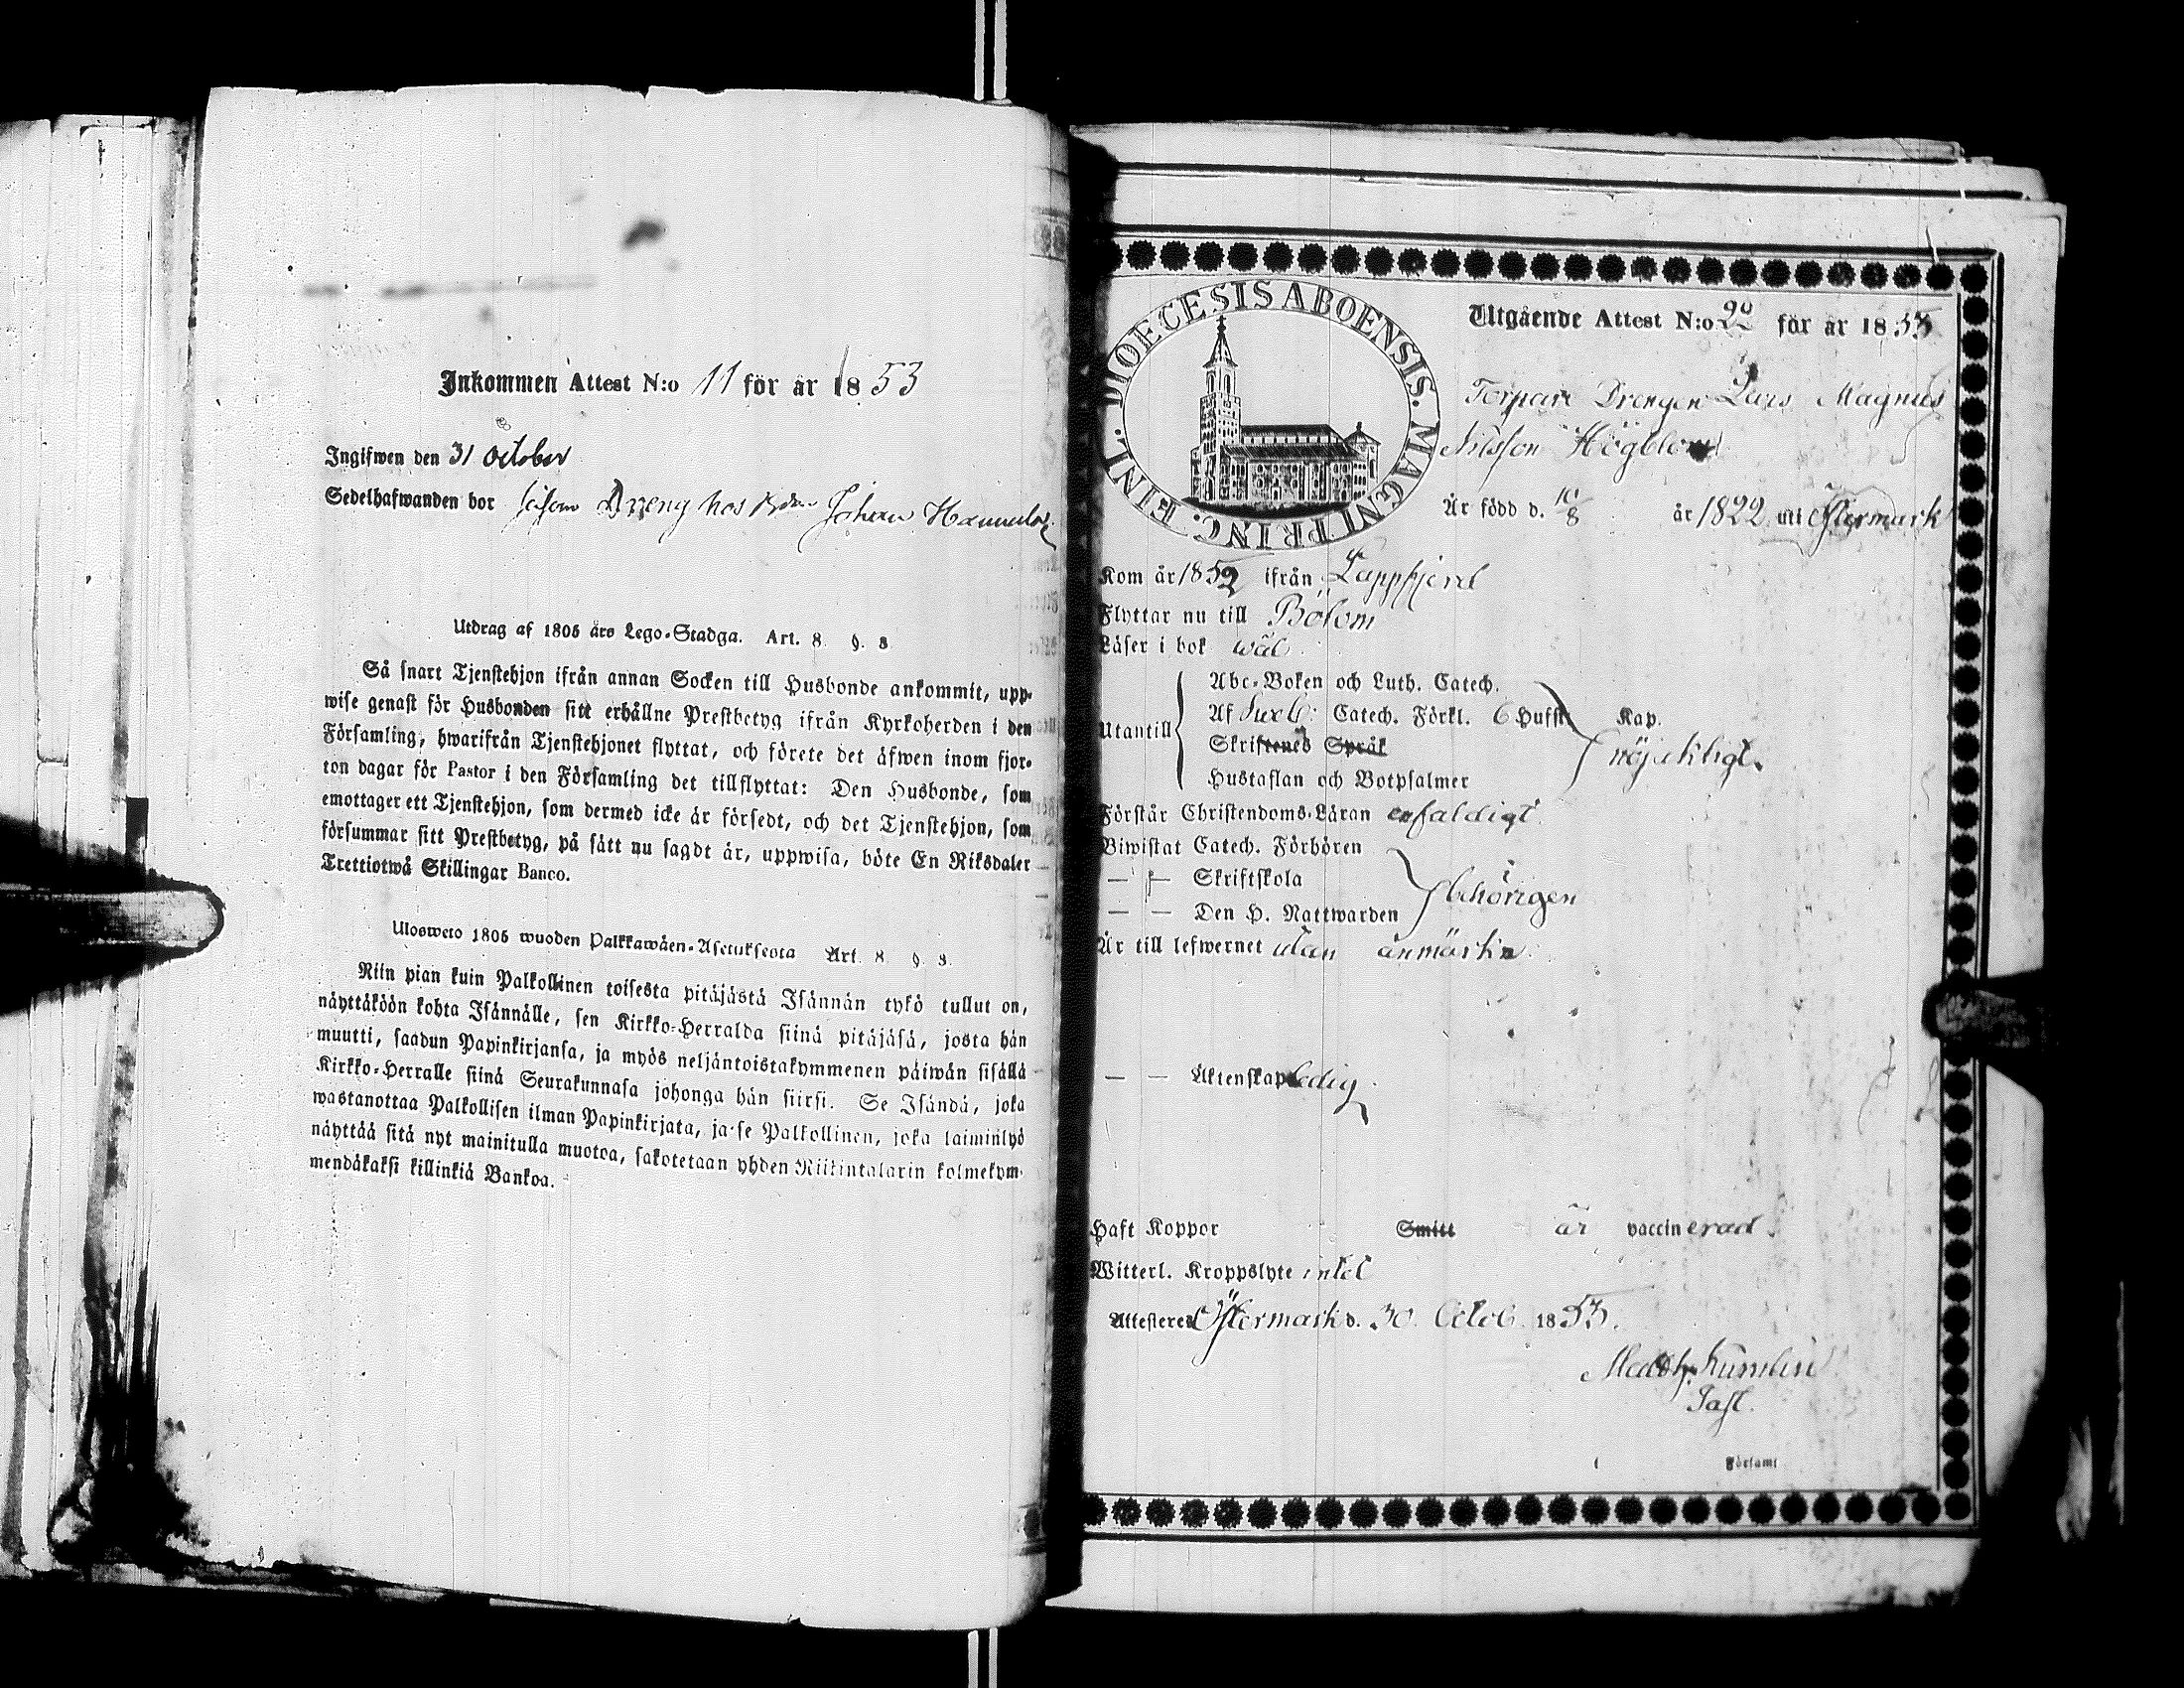 Inkommen Attest N:o 11 för år 1853
Ingifwen den 31 october
Sedelhafwanden bor såsom Dreng hos Johan
Utdrag af 1805 års Lego-Stadga. Art. 8 §. 3
Så snart Tjenstehjon ifrån annan Socken till Husbonde ankommit, upp-
wise genast för Husbonden sitt erhållne Prestbetyg ifrån Kyrkoherden i den
Församling, hwarifrån Tjenstehjonet flyttat, och förete det äfwen inom fjor-
ton dagar för Pastor i den Församling det tillflyttat: Den Husbonde, som
emottager ett Tjenstehjon, som dermed icke är försedt, och det Tjenstehjon, som
försummar sitt Prestbetyg, på sätt nu sagdt är, uppwisa, böte En Riksdaler
Trettiotwå Skillingar Banco.
Ulosweto 1805 wuoden Palkkawäen-Asetuksesta Art. 8 §. 3.
Niin pian kuin Palkollinen toisesta pitäjästä Isännän tykö tullut on,
näyttäköön kohta Isännälle, sen Kirkko-Herralda siinä pitäjäsä, josta hän
muutti, saadun Papinkirjansa, ja myös neljäntoistakymmenen päiwän sisällä
Kirkko-Herralle siinä Seurakunnasa johonga hän siirsi. Se Isändä, joka
wastanottaa Palkollisen ilman Papinkirjata, ja se Palkollinen, joka laiminlyö
näyttää sitä nyt mainitulla muotoa, sakotetaan yhden Riikintalarin kolmekym-
mendäkaksi killinkiä Bankoa.
DIOECESIS ABOENSIS. MAGNI PRINC. FINL.
Utgående Attest N:o för år 1853
Torpare Drengen Lars Magnus
Nilsson Högblom
Är född d. 10/8 år 1822 uti Östermark
Kom år 1852 ifrån Lappfjerd
Flyttar nu till Bötom
Läser i bok wäl
Utantill
Abc-Boken och Luth. Catech.
Af Sveb: Catech. Förkl. 6 Hufst. Kap.
Skriftenes Språk
Hustaflan och Botpsalmer
nöjaktigt.
Förstår Christendoms-Läran enfaldigt
Biwistat Catech. Förhören
— — Skriftskola
— — Den H. Nattwarden
behörigen
Är till lefwernet utan anmärkn:
— — Äktenskap ledig
Haft Koppor Smitt är vaccinerad.
Witterl. Kroppslyte intet
Attesteres Östermark d. 30 Octob. 1853.
Matth. Kumlin
Past.
i Församl